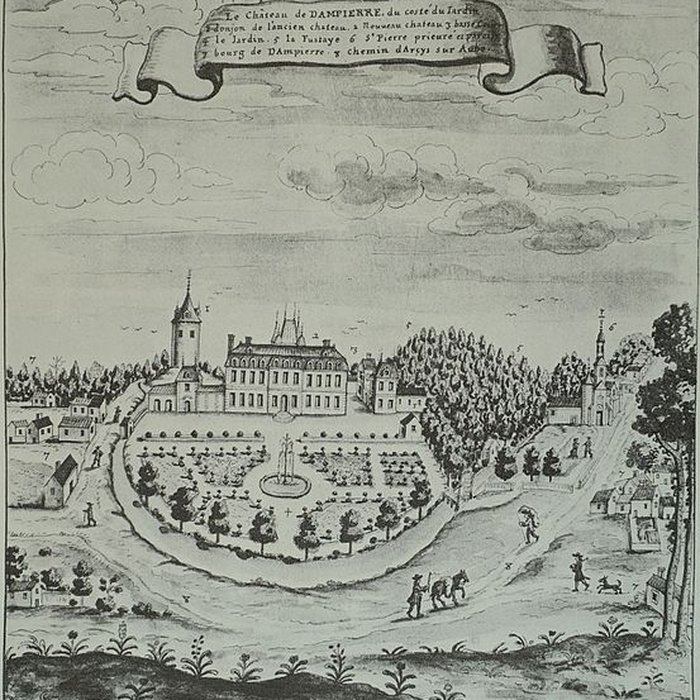 Le Château de DAMPIERRE, du costé du Jardin
donjon de l'ancien chateau. 2 Nouveau chateau 3 basse
4 le Jardin. 5 la Futaye 6 St Pierre prieuré et
7 bourg de DAmpierre. 8 chemin dArcys sur Aube
1
2
3
6
7
7
7
7
8
8